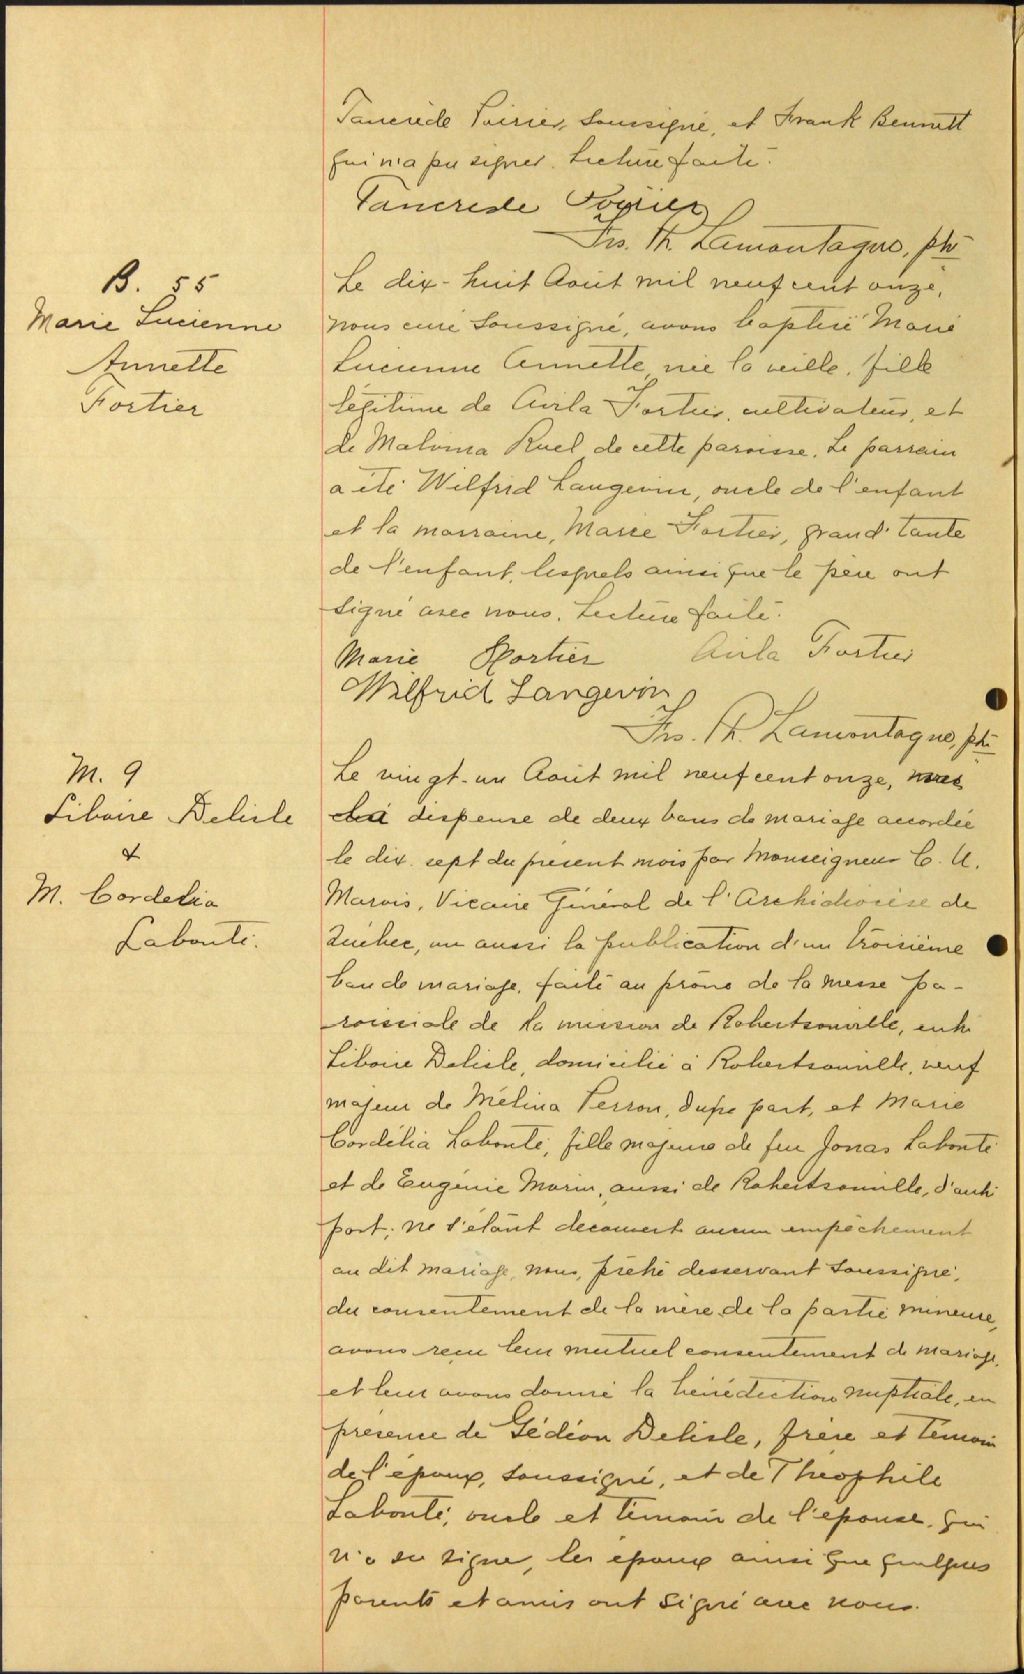 Tancrède Poirier, soussigné, et Frank Bennett
qui n'a pu signer. Lecture faite.
Tancrede Poirier
Frs. Th. Lamontagne, ptr
B. 55
Marie Lucienne
Annette
Fortier
Le dix-huit Août mil neuf cent onze,
nous curé soussigné, avons baptisé Marie
Lucienne Annette, née la veille, fille
légitime de Avila Fortier, cultivateur, et
de Malvina Ruel de cette paroisse. Le parrain
a été Wilfrid Langevin, oncle de l'enfant
et la marraine, Marie Fortier, grand'tante
de l'enfant, lesquels ainsi que le père ont
signé avec nous. Lecture faite.
Marie Fortier Avila Fortier
Wilfrid Langevin
Frs. Th. Lamontagne, ptr
M. 9
Liboire Delisle
&
M. Cordelia
Labonté.
Le vingt-un Août mil neuf cent onze,
dispense de deux bans de mariage accordée
le dix-sept du présent mois par Monseigneur C. A.
Marois, Vicaire Général de l'Archidiocèse de
Québec, vu aussi la publication d'un troisième
ban de mariage, faite au prône de la messe pa-
roissiale de la mission de Robertsonville, entre
Liboire Delisle, domicilié à Robertsonville, veuf
majeur de Mélina Perron, d'une part, et Marie
Cordélia Labonté, fille majeure de feu Jonas Labonté
et de Eugénie Morin, aussi de Robertsonville, d'autre
part; ne s'étant découvert aucun empêchement
au dit mariage, nous, prêtre desservant soussigné,
du consentement de la mère de la partie mineure,
avons reçu leur mutuel consentement de mariage,
et leur avons donné la bénédiction nuptiale, en
présence de Gédéon Delisle, frère et témoin
de l'époux, soussigné, et de Théophile
Labonté, oncle et témoin de l'épouse, qui
n'a su signer, les époux ainsi que quelques
parents et amis ont signé avec nous.